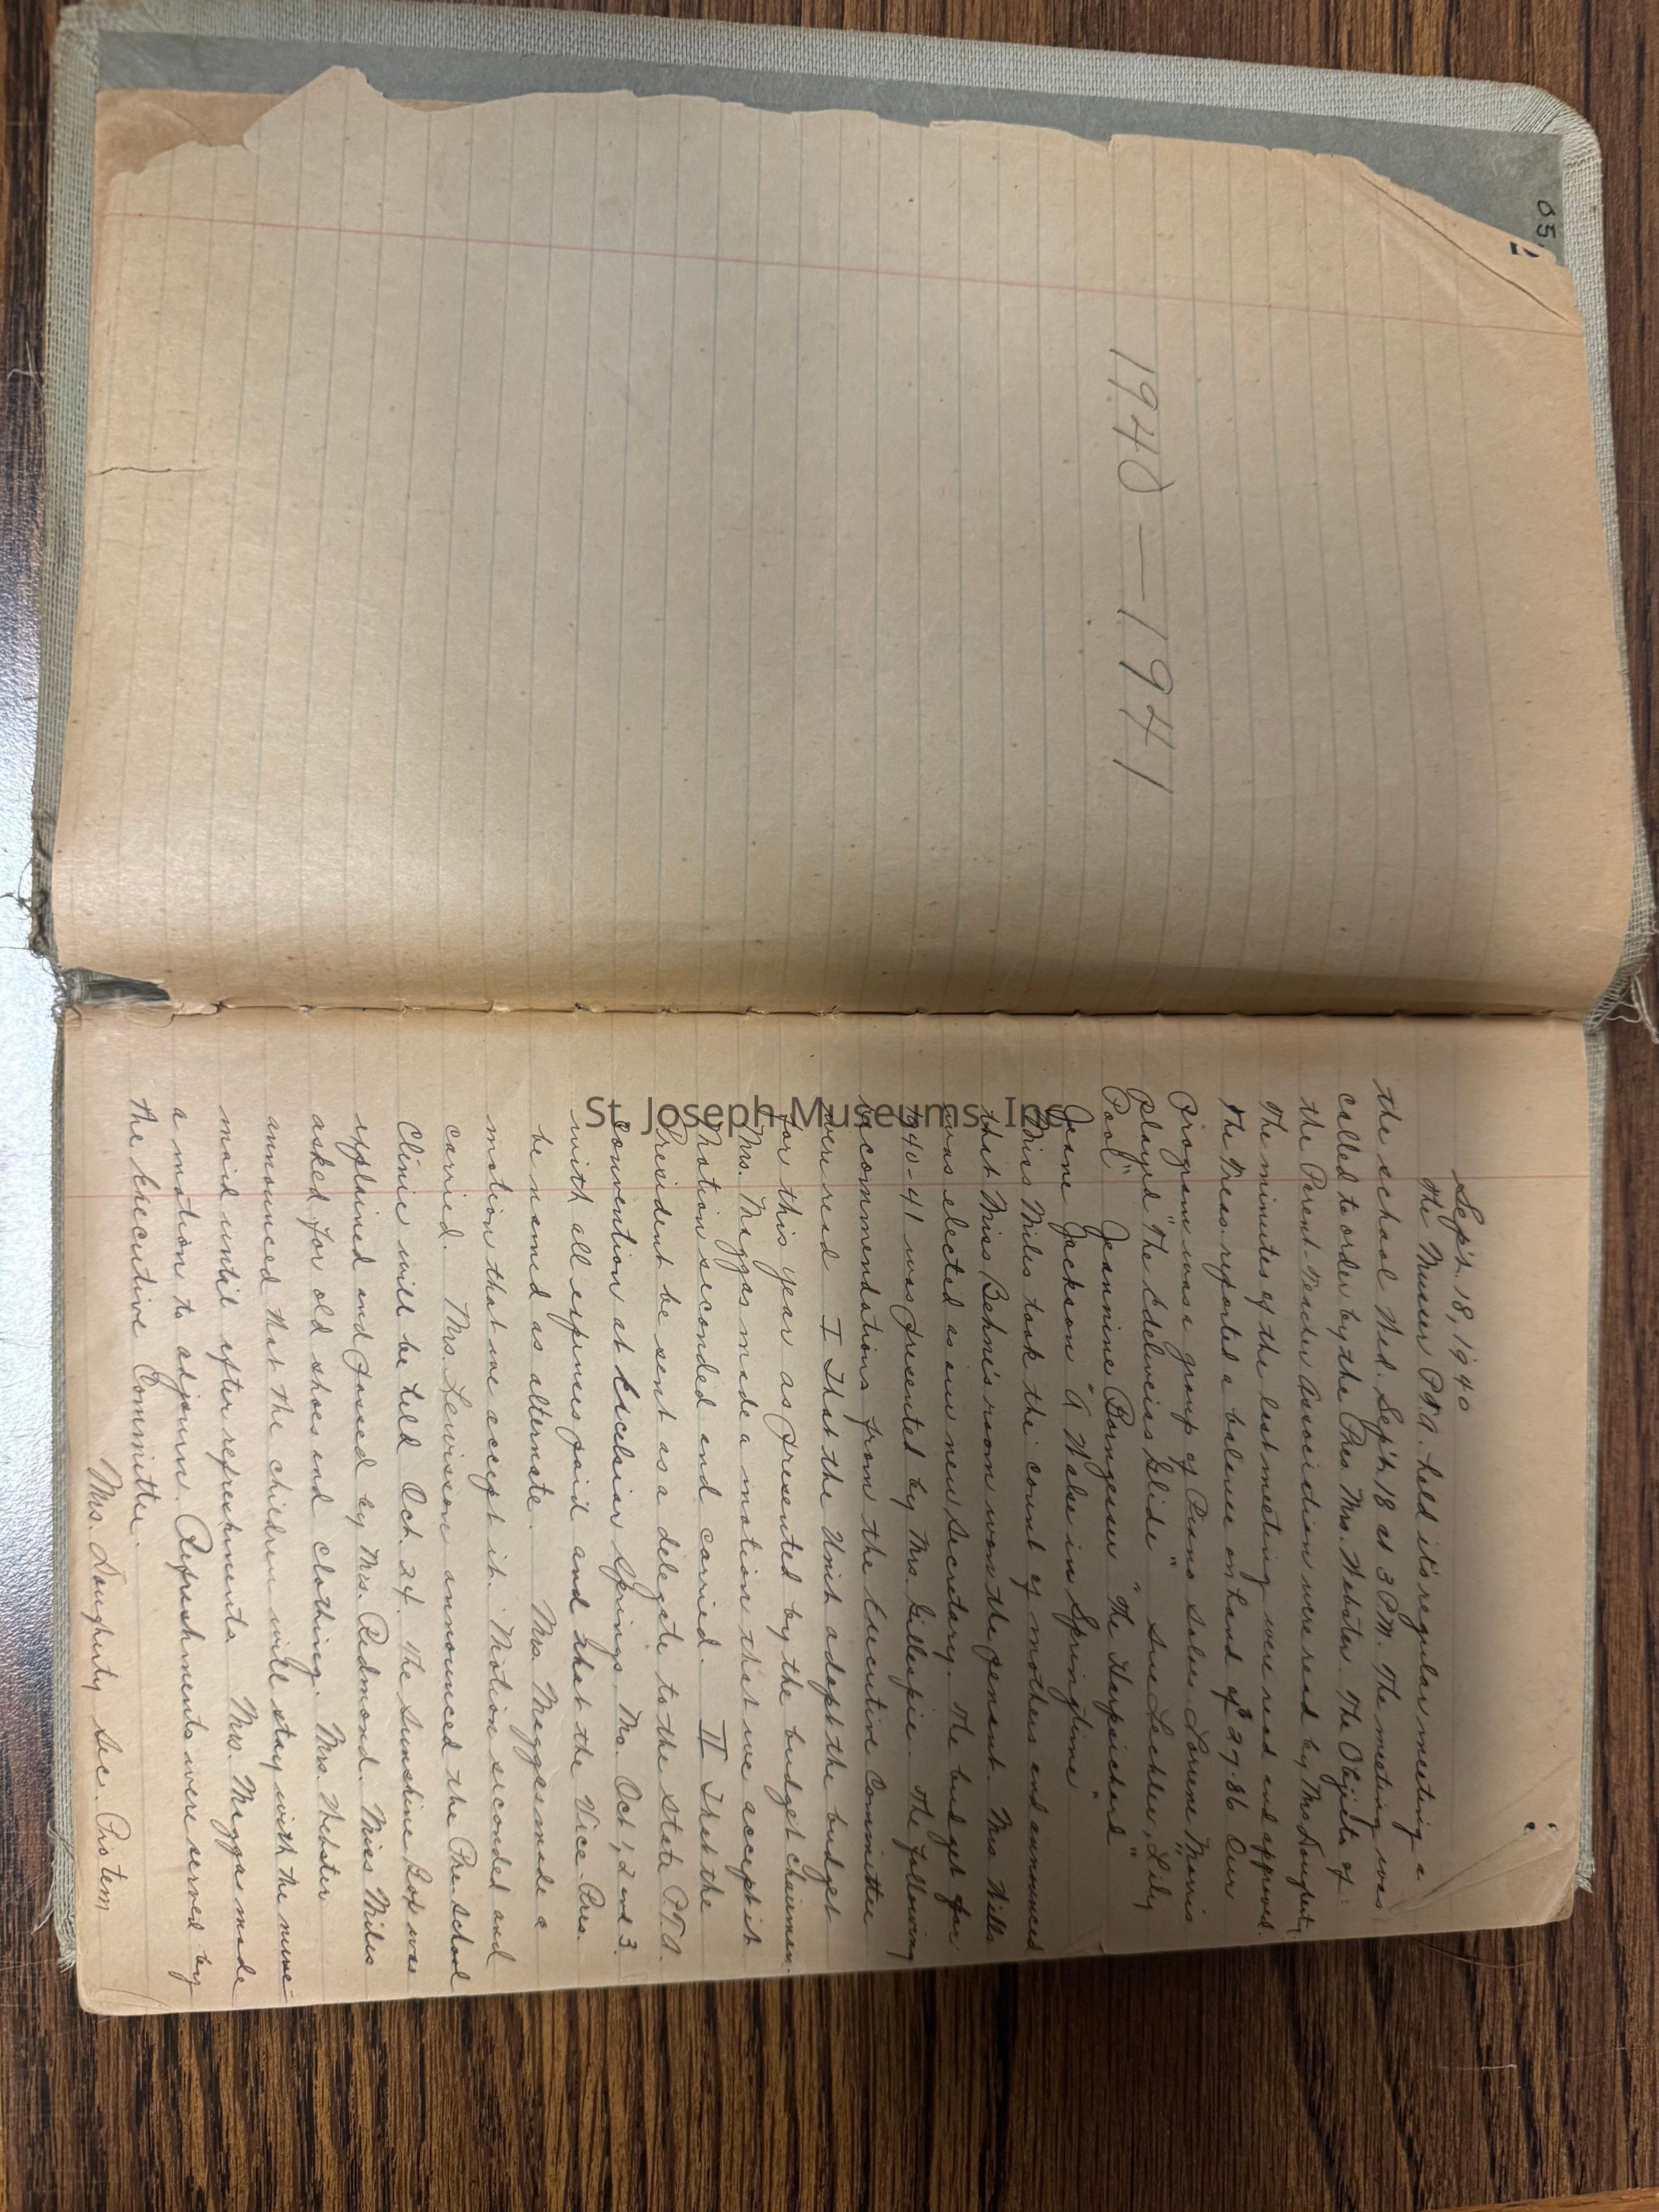 05.
1940 — 1941
Sept. 18, 1940
The Musser P.T.A. held it's regular meeting a
the school Wed. Sept. 18 at 3 P.M. The meeting was
called to order by the Pres. Mrs. Webster. The Objects of
the Parent-Teacher Association were read by Mrs Dougherty
The minutes of the last meeting were read and approved.
The Treas. reported a balance on hand of $29.86 Our
Program was a group of Piano Solos. Lorene Morris
played "The Edelweiss Glide" Sue Lechler, "Lily
Pool" Jeannine Borngesser "The Harpsichord"
Jeane Jackson "A Walse in Springtime"
Miss Miles took the count of mothers and announced
that Miss Behme's room won the penant. Mrs. Wills
was elected as our new Secretary. The budget for
1940-41 was presented by Mrs. Gillespie. The following
recommendations from the Executive Committee
were read I That the Unit adopt the budget
for this year as presented by the budget chairman.
Mrs. Meggas made a motion that we accept it
Motion seconded and carried. II That the
President be sent as a delegate to the state P.T.A.
convention at Excelsior Springs, Mo. Oct 1, 2 and 3.
with all expenses paid and that the Vice-Pres.
be named as alternate. Mrs. Meggas made a
motion that we accept it. Motion seconded and
carried. Mrs. Lewisson announced the Pre-School
Clinic will be held Oct. 24. The Sunshine Box was
explained and passed by Mrs. Redmond. Miss Miles
asked for old shoes and clothing. Mrs. Webster
announced that the children will stay with the nurse-
maid until after refreshments. Mrs. Meggas made
a motion to adjourn. Refreshments were served by
the Executive Committee.
Mrs. Dougherty Sec. Protem
St. Joseph Museums, Inc.